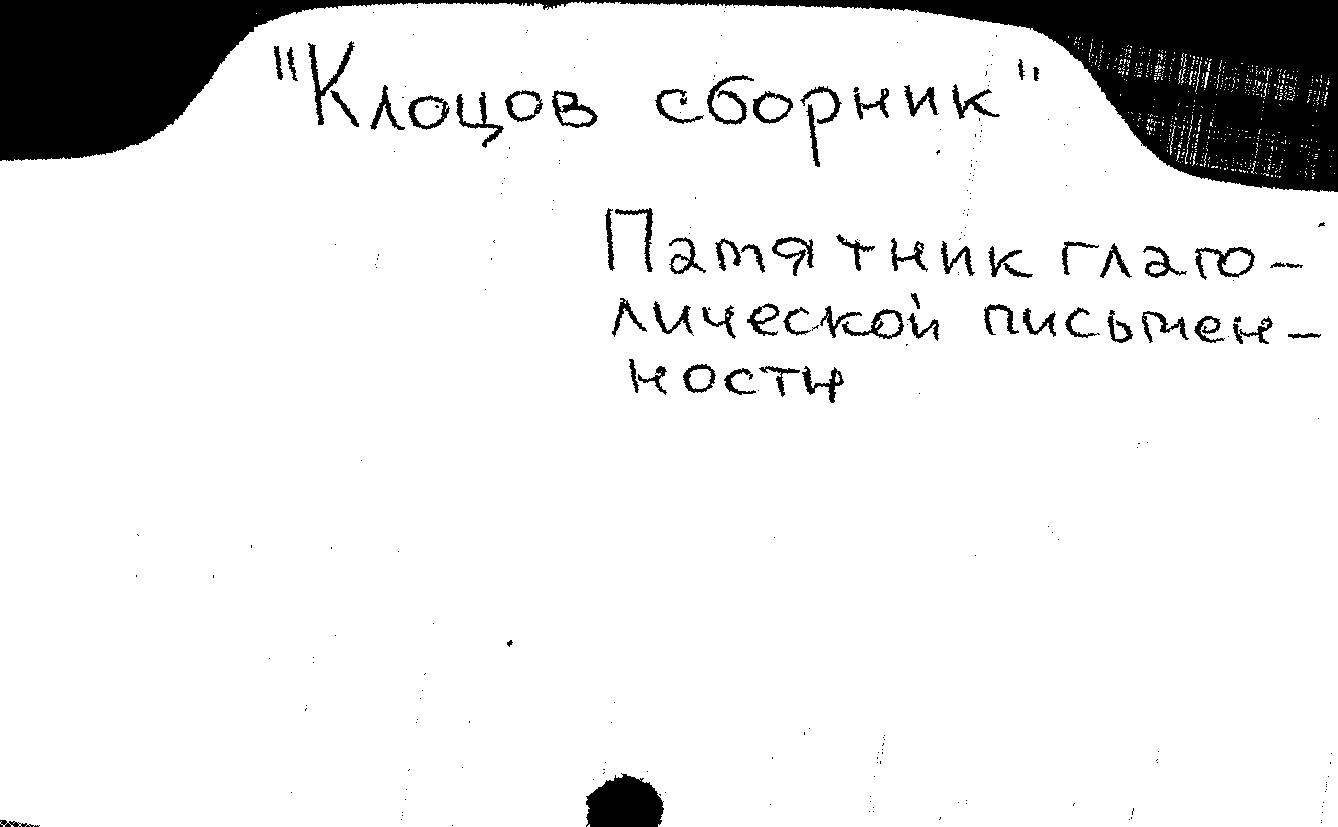 "Клоцов сборник"
Памятник глаго-
лической письмен-
ности